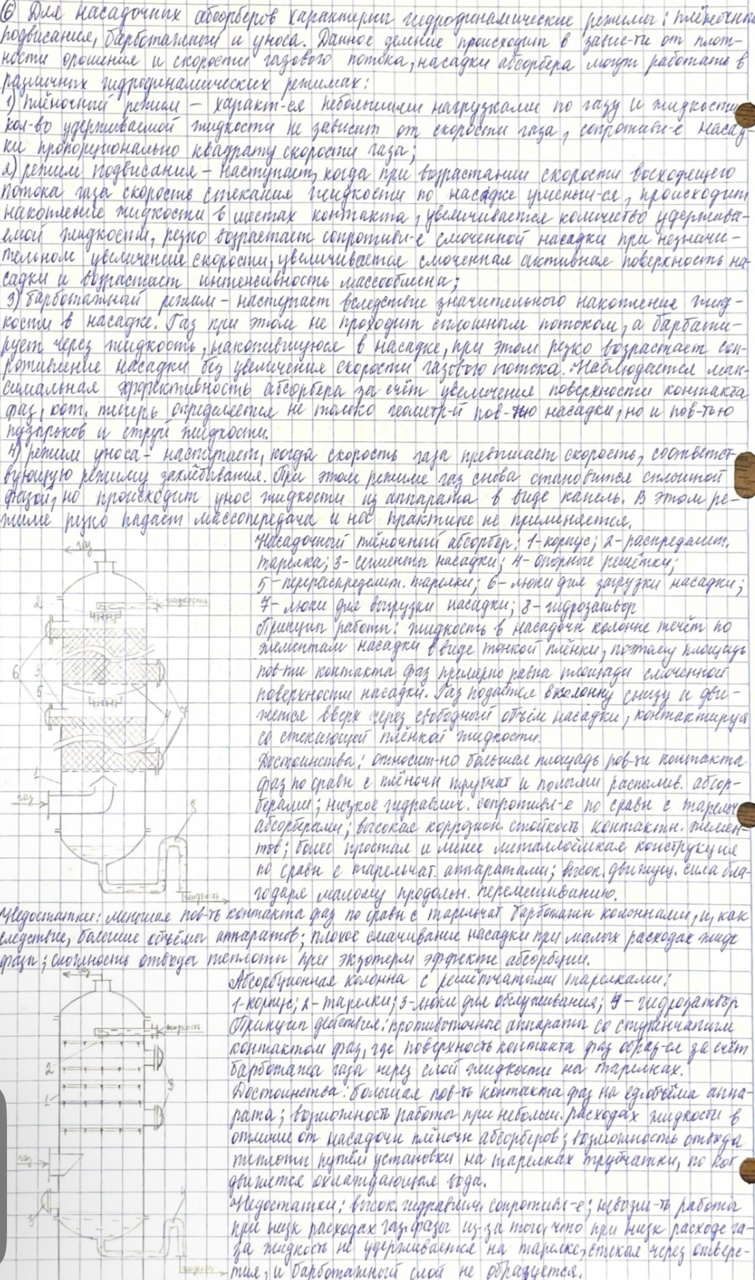 ⑥ Для насадочных абсорберов характерны гидродинамические режимы: плёночный
подвисания, барботажный и уноса. Данное деление происходит в завис-ти от плот-
ности орошения и скорости газового потока, насадки абсорбера могут работать в
различных гидродинамических режимах:
1) плёночный режим – характ-ся небольшими нагрузками по газу и жидкости
кол-во удерживаемой жидкости не зависит от скорости газа, сопротивл-е насад-
ки пропорционально квадрату скорости газа;
2) режим подвисания – наступает, когда при возрастании скорости восходящего
потока газа скорость стекания жидкости по насадке уменьш-ся, происходит
накопление жидкости в местах контакта, увеличивается количество удержива-
емой жидкости, резко возрастает сопротивл-е смоченной насадки при незначи-
тельном увеличении скорости, увеличивается смоченная активная поверхность на-
садки и возрастает интенсивность массообмена;
3) барботажный режим – наступает вследствие значительного накопления жид-
кости в насадке. Газ при этом не проходит сплошным потоком, а барботи-
рует через жидкость, накопившуюся в насадке, при этом резко возрастает соп-
ротивление насадки без увеличения скорости газового потока. Наблюдается мак-
симальная эффективность абсорбера за счёт увеличения поверхности контакта
фаз, кот. теперь определяется не только геометр-й пов-тью насадки, но и пов-тью
пузырьков и струй жидкости.
4) режим уноса – наступает, когда скорость газа превышает скорость, соответст-
вующую режиму захлёбывания. При этом режиме газ снова становится сплошной
фазой, но происходит унос жидкости из аппарата в виде капель. В этом ре-
жиме резко падает массопередача и на практике не применяется.
Насадочный плёночный абсорбер: 1-корпус; 2-распределит.
тарелка; 3-сегменты насадки; 4-опорные решётки;
5-перераспределит. тарелки; 6-люки для загрузки насадки;
7-люки для выгрузки насадки; 8-гидрозатвор
Принцип работы: жидкость в насадочн колонне течёт по
элементам насадки в виде тонкой плёнки, поэтому площадь
пов-ти контакта фаз примерно равна площади смоченной
поверхности насадки. Газ подаётся в колонну снизу и дви-
жется вверх через свободный объём насадки, контактируя
со стекающей плёнкой жидкости.
Достоинства: относит-но большая площадь пов-ти контакта
фаз по сравн с плёночн трубчат и полыми распылив. абсор-
берами; низкое гидравлич. сопротивл-е по сравн с тарельч
абсорберами; высокая коррозион. стойкость контактн. элемен-
тов; более простая и менее металлоёмкая конструкция
по сравн с тарельчат. аппаратами; высок. движущ. сила бла-
годаря малому продольн. перемешиванию.
Недостатки: меньшая пов-ть контакта фаз по сравн с тарельчат барботажн колоннами, и, как
следствие, большие объёмы аппаратов; плохое смачивание насадки при малых расходах жидк
фазы; сложность отвода теплоты при экзотерм эффекте абсорбции.
газ
2
жидкость
6
3
5
4
7
1
газ
8
жидкость
Абсорбционная колонна с решётчатыми тарелками:
1-корпус; 2-тарелки; 3-люки для обслуживания; 4-гидрозатвор
Принцип действия: противоточные аппараты со ступенчатым
контактом фаз, где поверхность контакта фаз образ-ся за счёт
барботажа газа через слой жидкости на тарелках.
Достоинства: большая пов-ть контакта фаз на ед. объёма аппа-
рата; возможность работы при небольш. расходах жидкости в
отличие от насадочн плёночн абсорберов; возможность отвода
теплоты путём установки на тарелках трубчатки, по кот
движется охлаждающая вода.
Недостатки: высок. гидравлич. сопротивл-е; невозм-ть работы
при низк расходах газ. фазы из-за того, что при низк расходе га-
за жидкость не удерживается на тарелке, стекая через отверс-
тия, и барботажный слой не образуется.
газ
жидкость
2
1
3
газ
3
4
жидкость